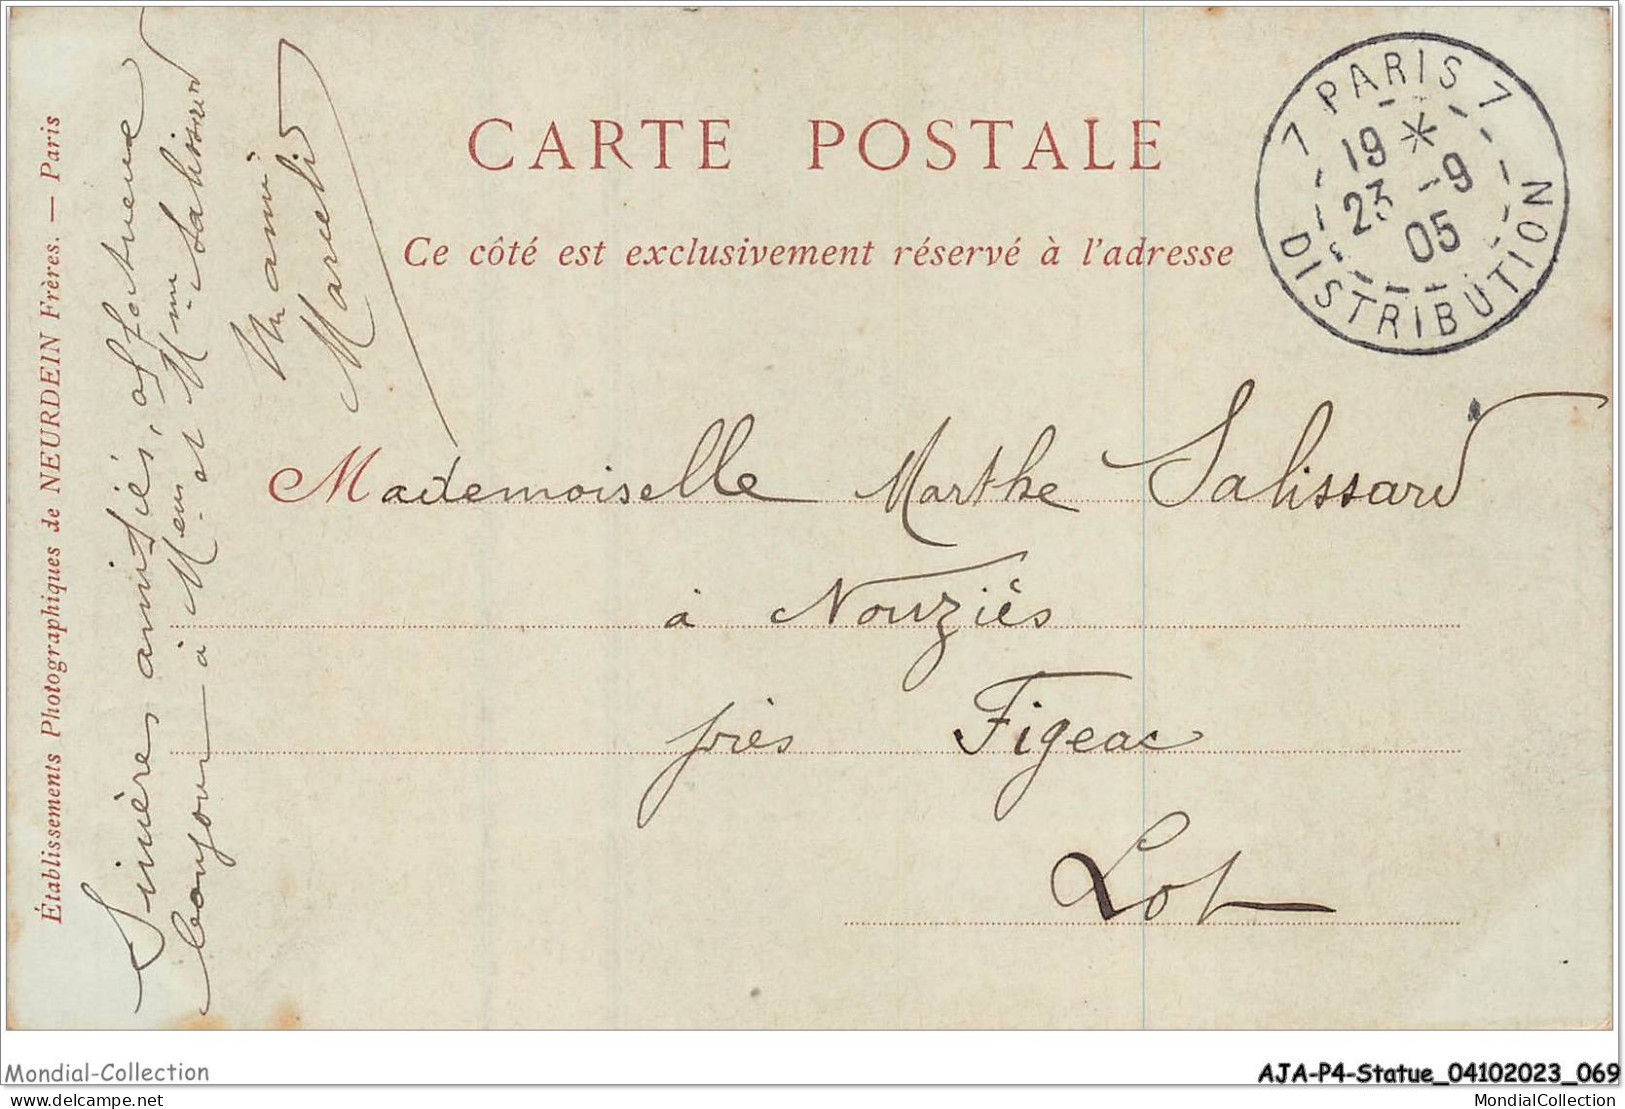 CARTE POSTALE
Ce côté est exclusivement réservé à l'adresse
7 PARIS 7
19 *
23 -9
05
DISTRIBUTION
Mademoiselle Marthe Salissard
à Nouziés
près Figeac
Lot
Sincères amitiés, affectueux
bonjour à Mons et Mme Salissard
Un ami
Marcel
Établissements Photographiques de NEURDEIN Frères. — Paris
Mondial-Collection
AJA-P4-Statue_04102023_069
MondialCollection